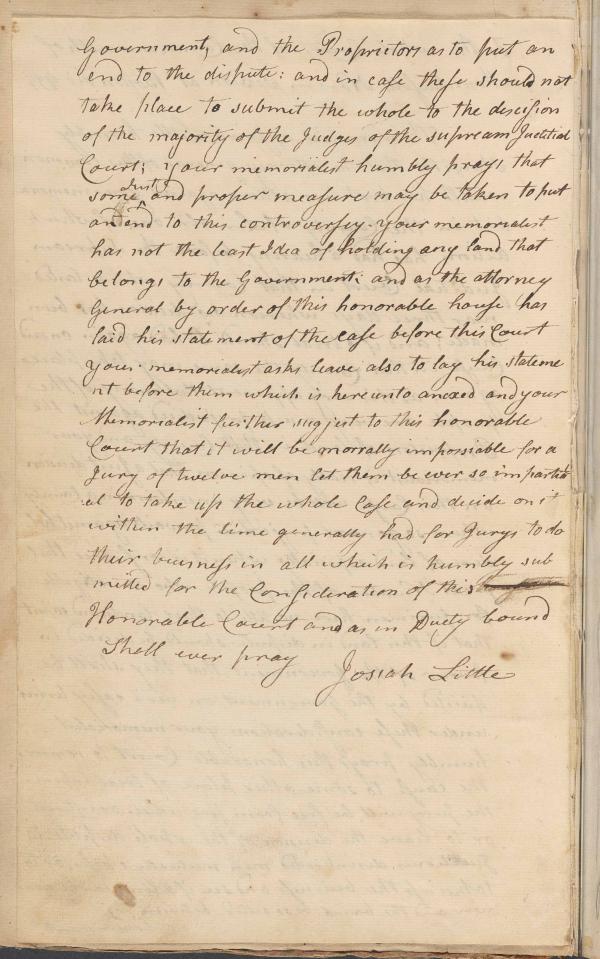 Government, and the Proprietors as to put an
end to the dispute: and in case these should not
take place to submit the whole to the descision
of the majority of the Judges of the supream Juditial
Court; your memorialist humbly prays that
some Just and proper measure may be taken to put
an end to this controversey. your memorialist
has not the least Idea of holding any land that
belongs to the Government; and as the attorney
General by order of this honorable house has
laid his statement of the case before this Court
your memorialist asks leave also to lay his stateme
nt before them which is hereunto anexed and your
Memorialist further sugjest to this honorable
Court that it will be morrally impossiable for a
Jury of twelve men let them be ever so impartia
al to take up the whole Case and decide on it
within the time generally had for Jurys to do
their buisness in all which is humbly sub
mitted for the Consideration of this
Honorable Court and as in Duety bound
Shall ever pray
Josiah Little